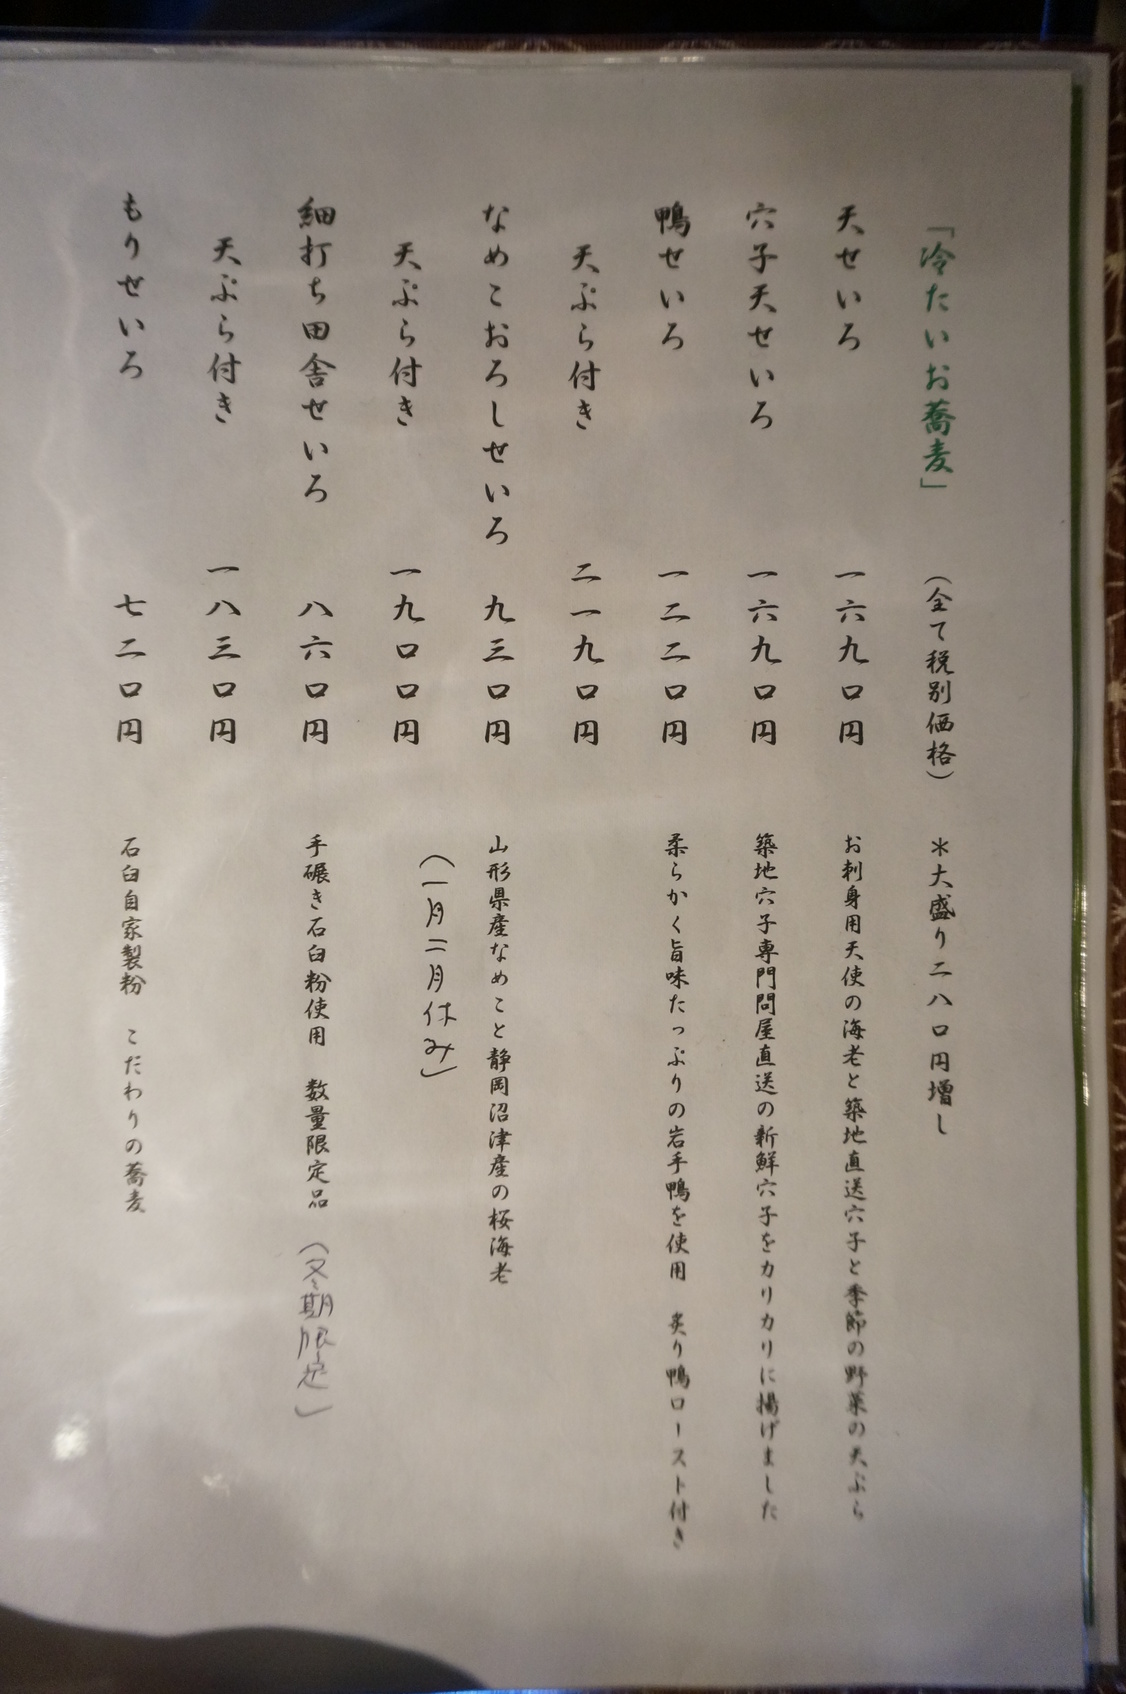 「冷たいお蕎麦」 (全て税別価格) ＊大盛り二八〇円増し
天せいろ 一六九〇円 お刺身用天使の海老と築地直送穴子と季節の野菜の天ぷら
穴子天せいろ 一六九〇円 築地穴子専門問屋直送の新鮮穴子をカリカリに揚げました
鴨せいろ 一二二〇円 柔らかく旨味たっぷりの岩手鴨を使用 炙り鴨ロースト付き
天ぷら付き 二一九〇円
なめこおろしせいろ 九三〇円 山形県産なめこと静岡沼津産の桜海老
(一月二月休み)
天ぷら付き 一九〇〇円
細打ち田舎せいろ 八六〇円 手碾き石臼粉使用 数量限定品 (冬期限定)
天ぷら付き 一八三〇円
もりせいろ 七二〇円 石臼自家製粉 こだわりの蕎麦